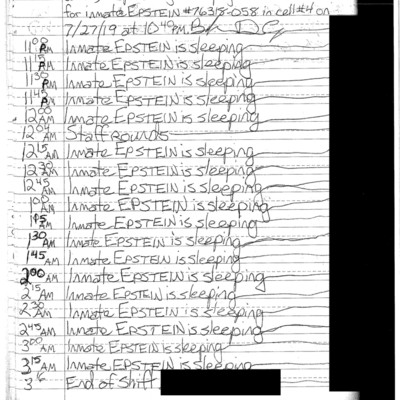 for Inmate EPSTEIN #76318-058 in cell #4 on
7/27/19 at 10 40 PM.
11 00 PM Inmate EPSTEIN is sleeping
11 15 PM Inmate EPSTEIN is sleeping
11 30 PM Inmate EPSTEIN is sleeping
11 45 PM Inmate EPSTEIN is sleeping
12 00 AM Inmate EPSTEIN is sleeping
12 04 AM Staff rounds
12 15 AM Inmate EPSTEIN is sleeping
12 30 AM Inmate EPSTEIN is sleeping
12 45 AM Inmate EPSTEIN is sleeping
1 00 AM Inmate EPSTEIN is sleeping
1 15 AM Inmate EPSTEIN is sleeping
1 30 AM Inmate EPSTEIN is sleeping
1 45 AM Inmate EPSTEIN is sleeping
2 00 AM Inmate EPSTEIN is sleeping
2 15 AM Inmate EPSTEIN is sleeping
2 30 AM Inmate EPSTEIN is sleeping
2 45 AM Inmate EPSTEIN is sleeping
3 00 AM Inmate EPSTEIN is sleeping
3 15 AM Inmate EPSTEIN is sleeping
3 16 End of Shift